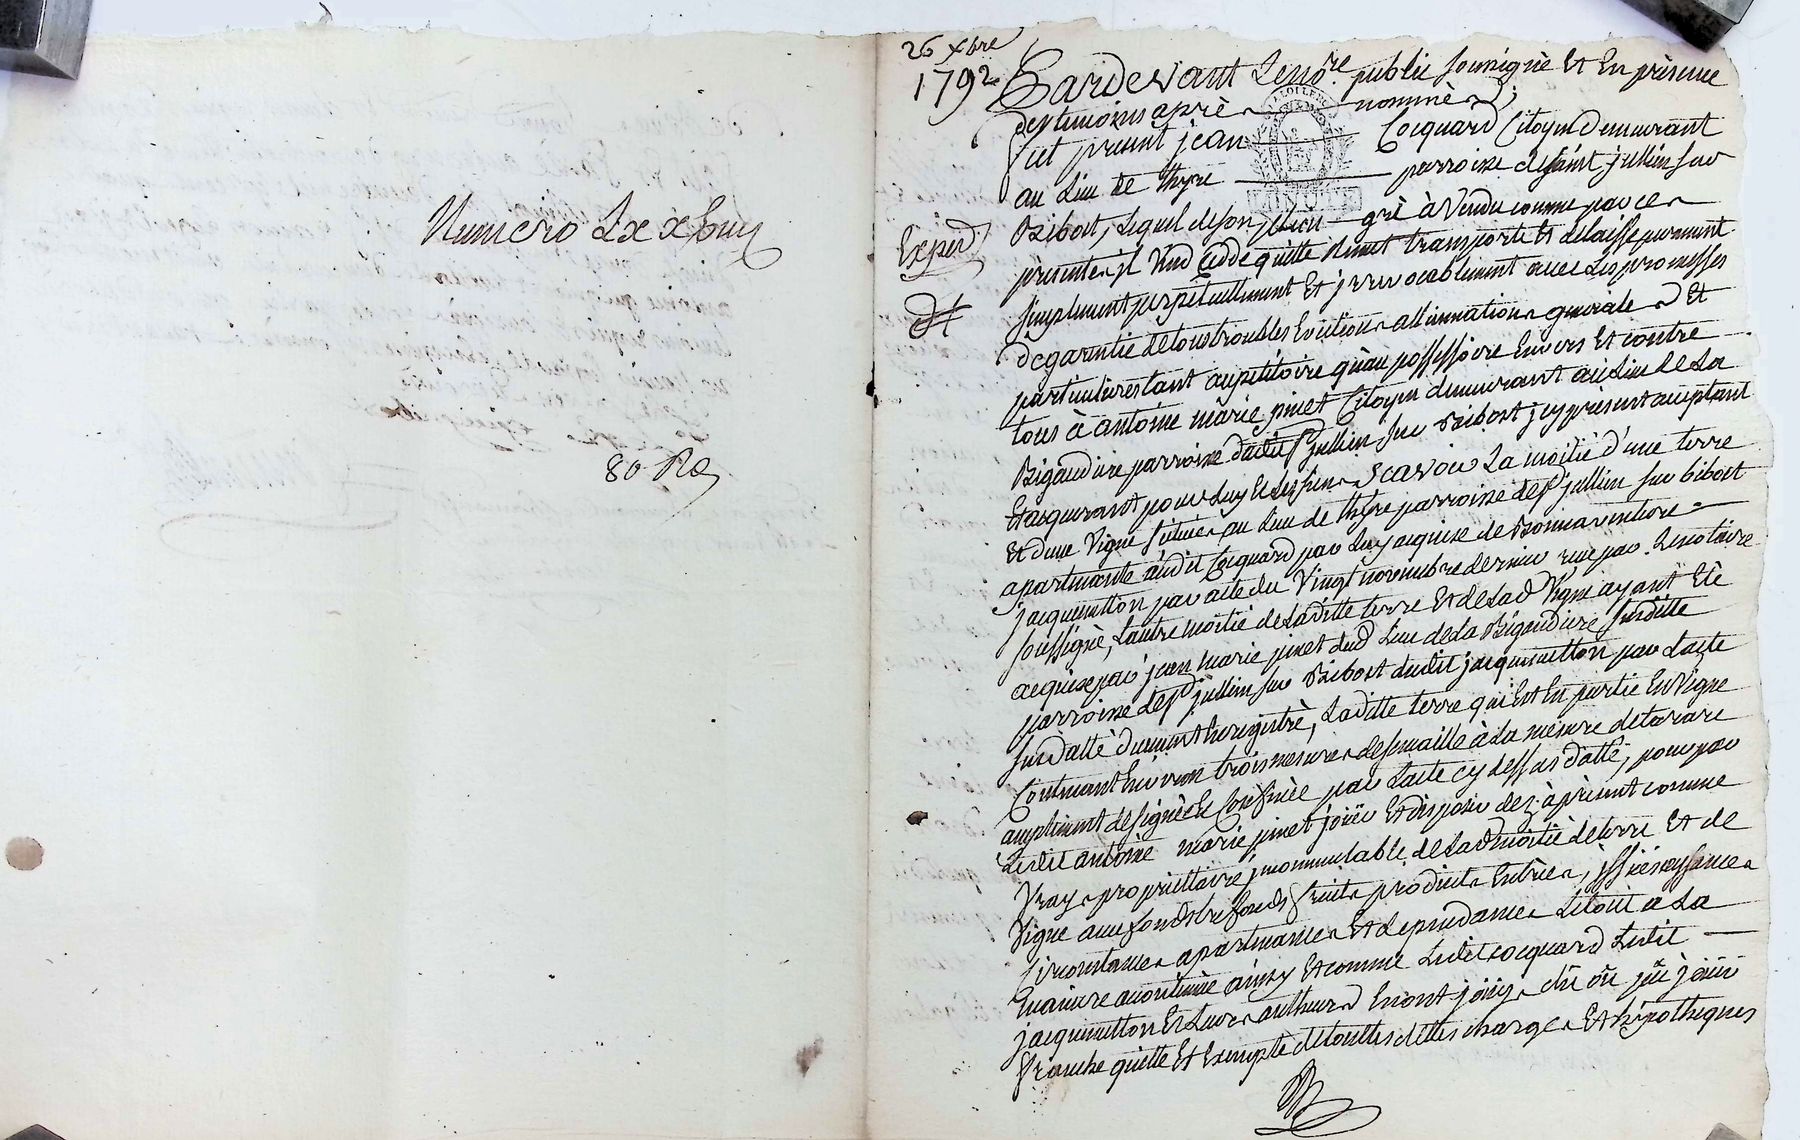 Numero Lxx
80 Rs
26 xbre
1792
Exped
Pardevant Le nore public soussigné Et En présence
des temoins aprè nommés
fut present jean Cocquard Citoyen demeurant
au Lieu de thyre parroisse de saint jullien sur
Bibost, Lequel de son bon gré à Vendu comme par ces
présentes jl Vend cedde quitte Remet transporte Et délaisse purement
simplement perpetuellement Et jrrevocablement avec Les promesses
de garantie de tous troubles Evictions allienations generale Et
particulieres tant au petitoire qu'au possessoire Envers Et contre
tous à antoine marie pinet Citoyen demeurant au Lieu de La
Bigaudiere parroisse dudit St jullien sur Bibost jcy present acceptant
Et acquerant pour Luy Et Les siens Scavoir La moitié d'une terre
Et d'une Vigne située au Lieu de thyre parroisse de St jullien sur bibost
apartenante audit Cocquard par Luy acquise de Bonnaventure
jacquemetton par acte du Vingt novembre dernier recu par Le notaire
soussigné, L'autre moitié de Laditte terre Et de Lad Vigne ayant Eté
acquise par jean marie pinet dud Lieu de La Bigaudiere susditte
parroisse de St jullien sur Bibost dudit jacquemetton par L'acte
susdatté duement Enregistré, Laditte terre qui Est En partie En Vigne
Contenant Environ trois mesures de semaille à La mesure de tarare
amplement designée Et Confinée par L'acte cy dessus datté, pour par
Ledit antoine marie pinet jouir Et disposer dez à present comme
Vray proprietaire jncommutable de Lad moitié de terre Et de
Vigne avec fonds trefonds fruits produits Entrées, jssües aysances
circonstances apartenances Et dependances Le tout a La
maniere accoutumée ainsy Et comme Ledit cocquard Ledit
jacquemetton Et Leurs autheurs En ont jouy dû ou pû jouir
franche quitte Et Exempte de touttes dettes charges Et hipotheques